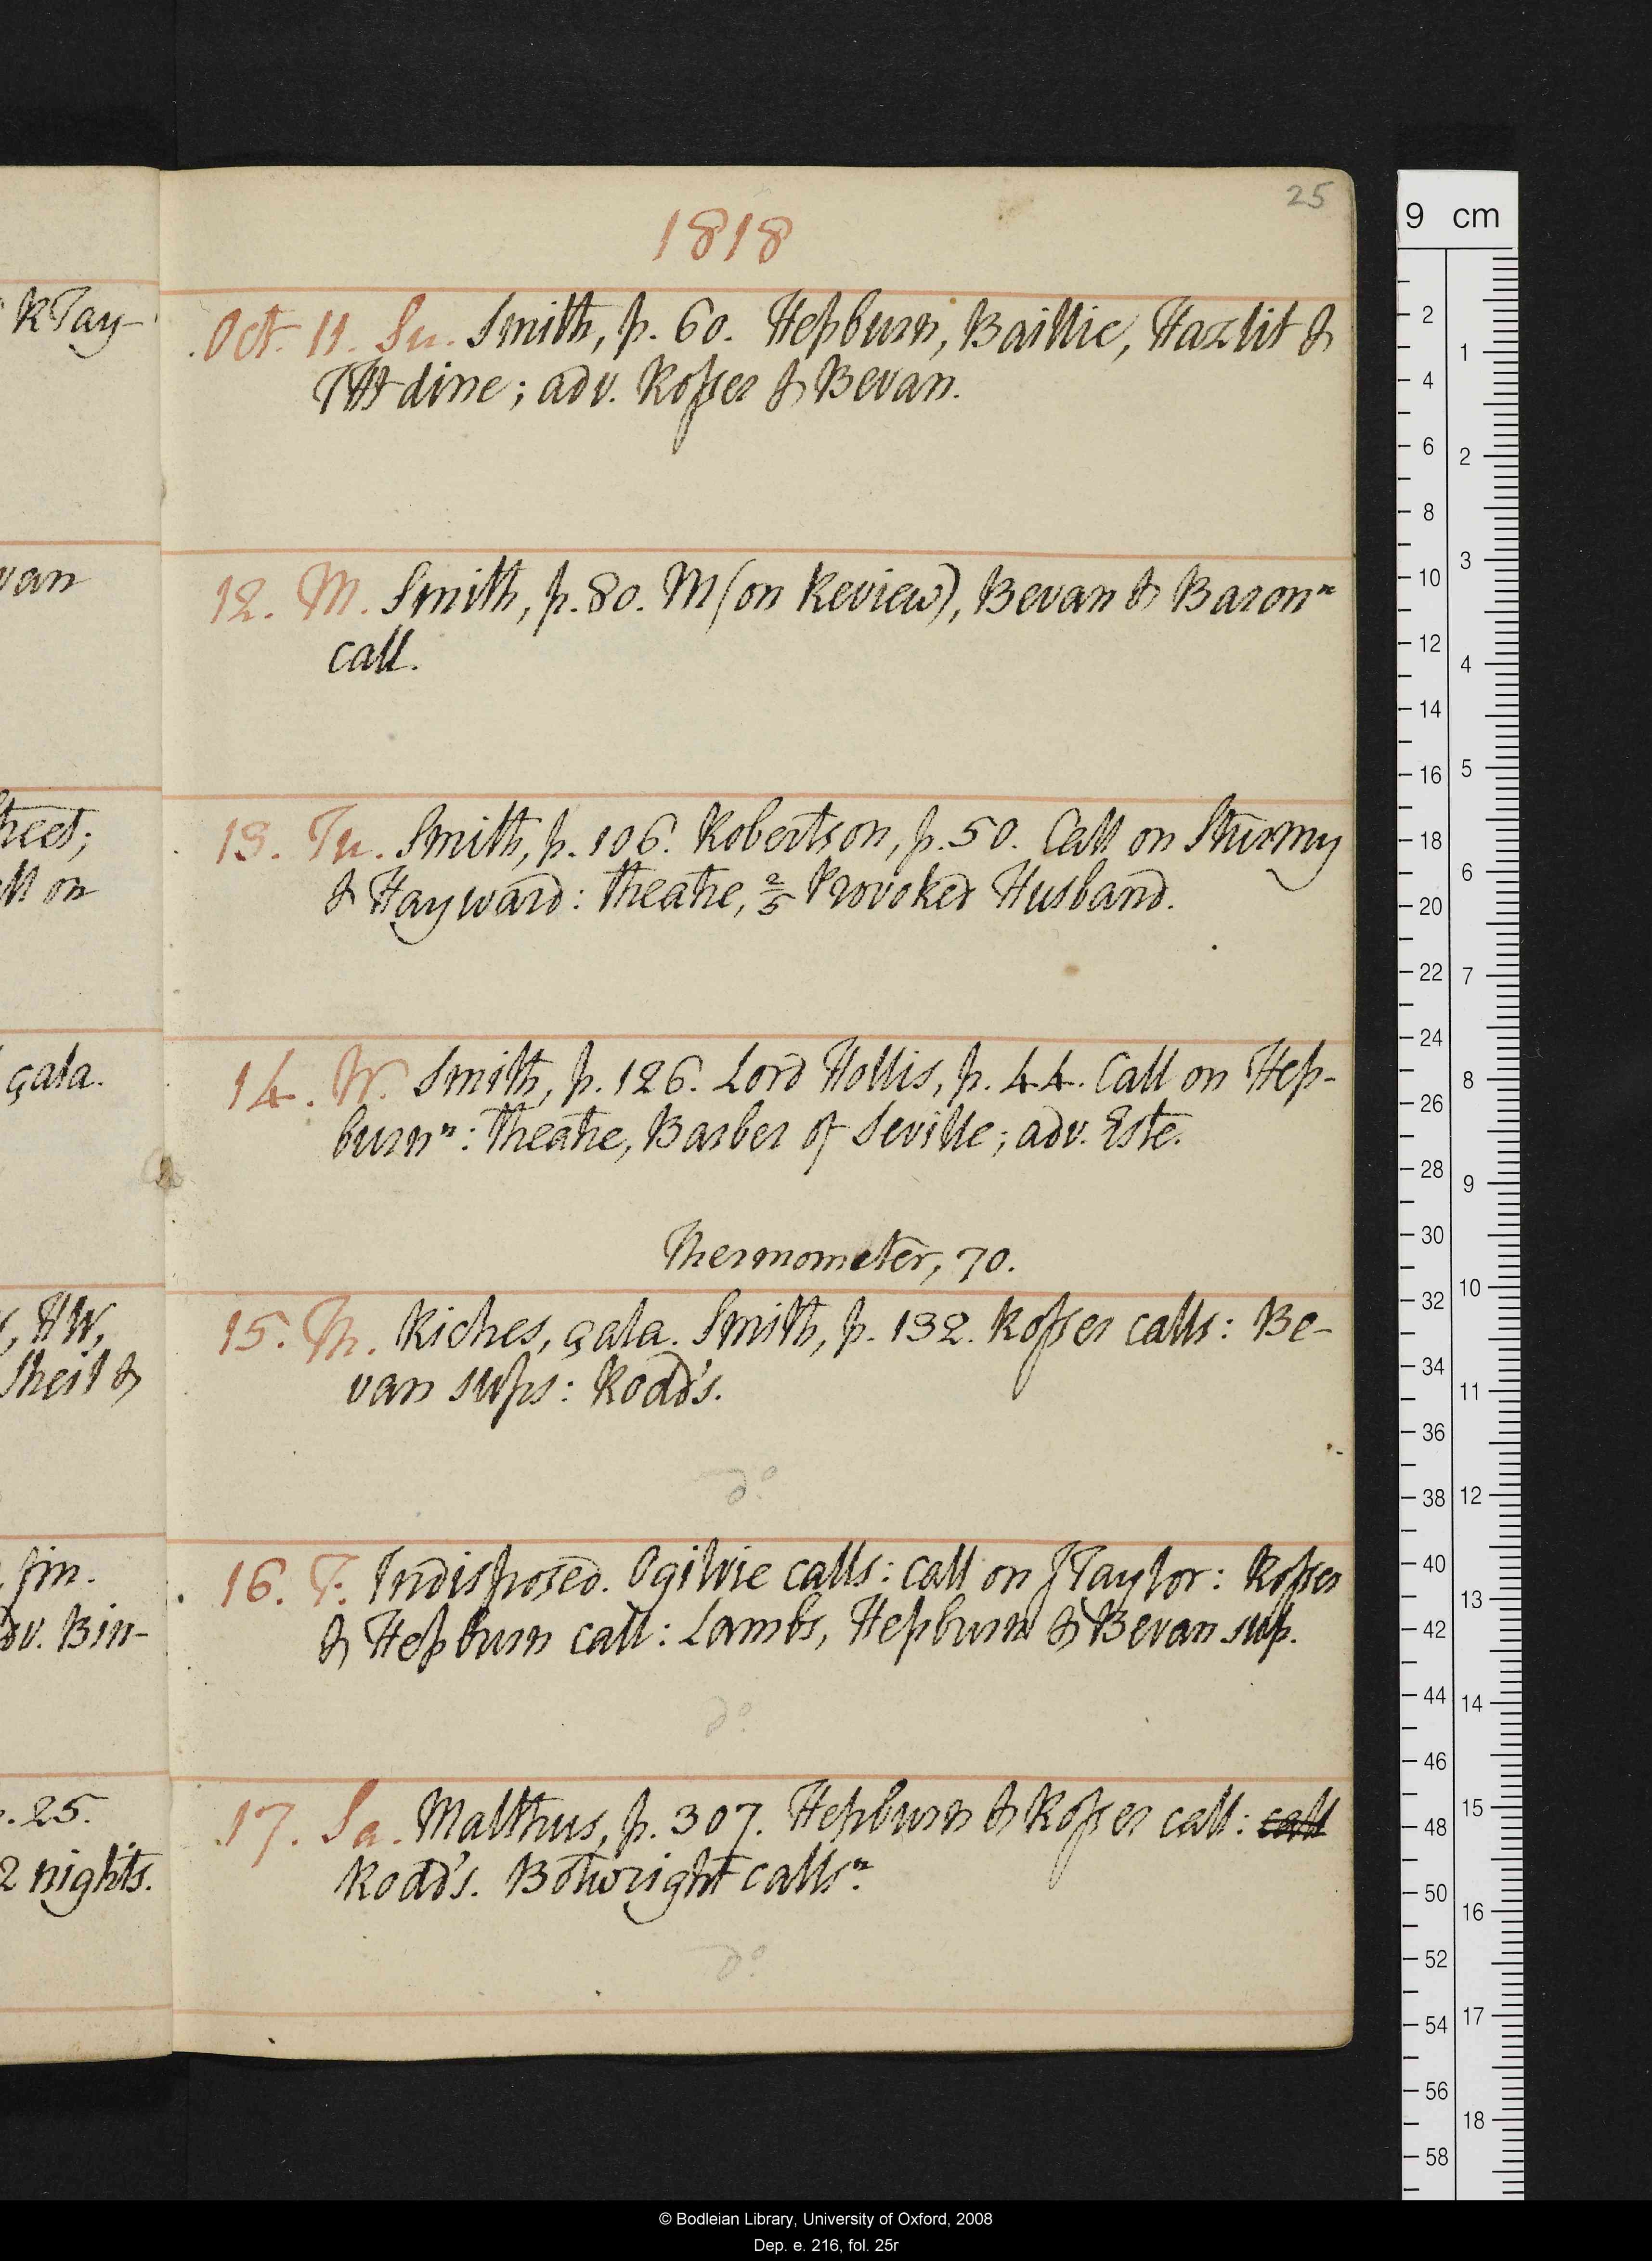 25
1818
Oct. 11. Su. Smith, p. 60. Hepburn, Baillie, Hazlit &
TH dine; adv. Rosser & Bevan.
12. M. Smith, p. 80. M (on Review), Bevan & Baron n
call.
13. Tu. Smith, p. 106. Robertson, p. 50. Call on Sturmy
& Hayward: theatre, 2/5 Provoked Husband.
14. W. Smith, p. 126. Lord Hollis, p. 44. Call on Hep-
burn n: theatre, Barber of Seville; adv. Este.
Thermometer, 70.
15. Th. Riches, çala. Smith, p. 132. Rosser calls: Be-
van sups: Rodd's.
do.
16. F. Indisposed. Ogilvie calls: call on J Taylor: Rosser
& Hepburn call: Lambs, Hepburn & Bevan sup.
do.
17. Sa. Malthus, p. 307. Hepburn & Rosser call: call
Rodd's. Botwright calls n.
do.
k Tay-
van
street;
ll on
çala.
, HW,
Sheil &
fin.
dv. Bin-
. 25.
2 nights.
9 cm
2 4 6 8 10 12 14 16 18 20 22 24 26 28 30 32 34 36 38 40 42 44 46 48 50 52 54 56 58
1 2 3 4 5 6 7 8 9 10 11 12 13 14 15 16 17 18
© Bodleian Library, University of Oxford, 2008
Dep. e. 216, fol. 25r